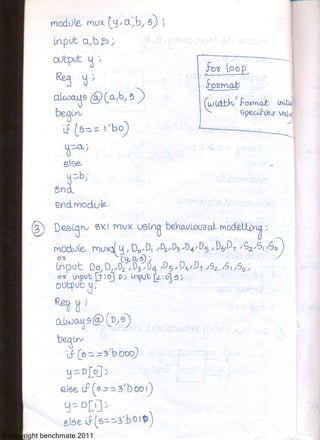 module mux (y,a,b, s) ;
input a,b,s ;
output y ;
Reg y ;
always @ (a,b,s)
begin
if (s== 1'b0)
y=a;
else
y=b;
end
endmodule.
for loop
format
(width' format
specifier
③ Design 8x1 mux using behavioural modelling :
module mux(y, D0, D1, D2, D3, D4, D5, D6 D7, S2, S1, S0)
or (y, D, S) ;
input D0, D1, D2, D3, D4, D5, D6, D7, S2, S1, S0 ;
or input [7:0] D; input [2:0] S;
output y;
Reg y ;
always @ (D,S)
begin
if (s==3'b000)
y=D[0];
else if (s==3'b001)
y= D[1];
else if (s==3'b010)
right benchmate 2011